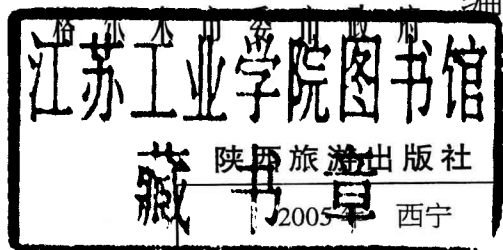 格尔木市委市政府 编
江苏工业学院图书馆
藏书章
陕西旅游出版社
2005年 西宁